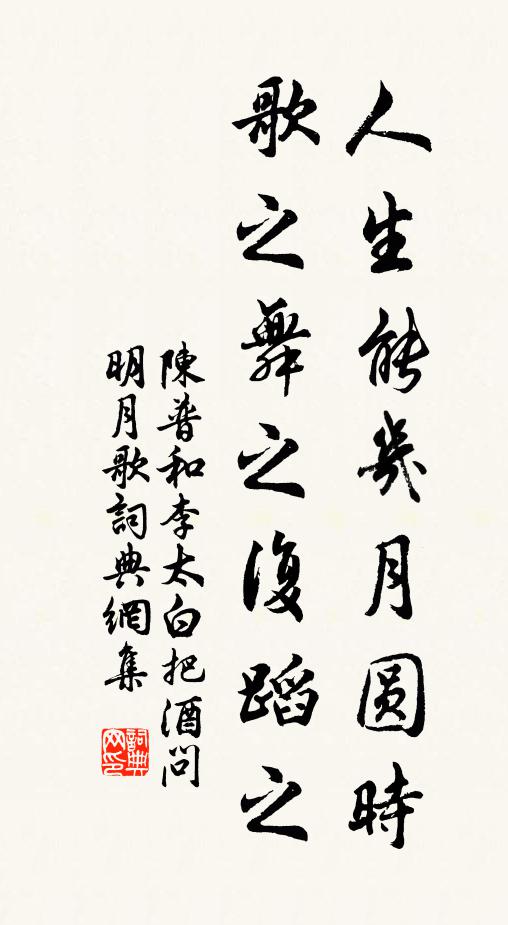 人生能幾月圓時
歌之舞之復蹈之
陳普和李太白把酒問
明月歌詞典網集
詞典網印